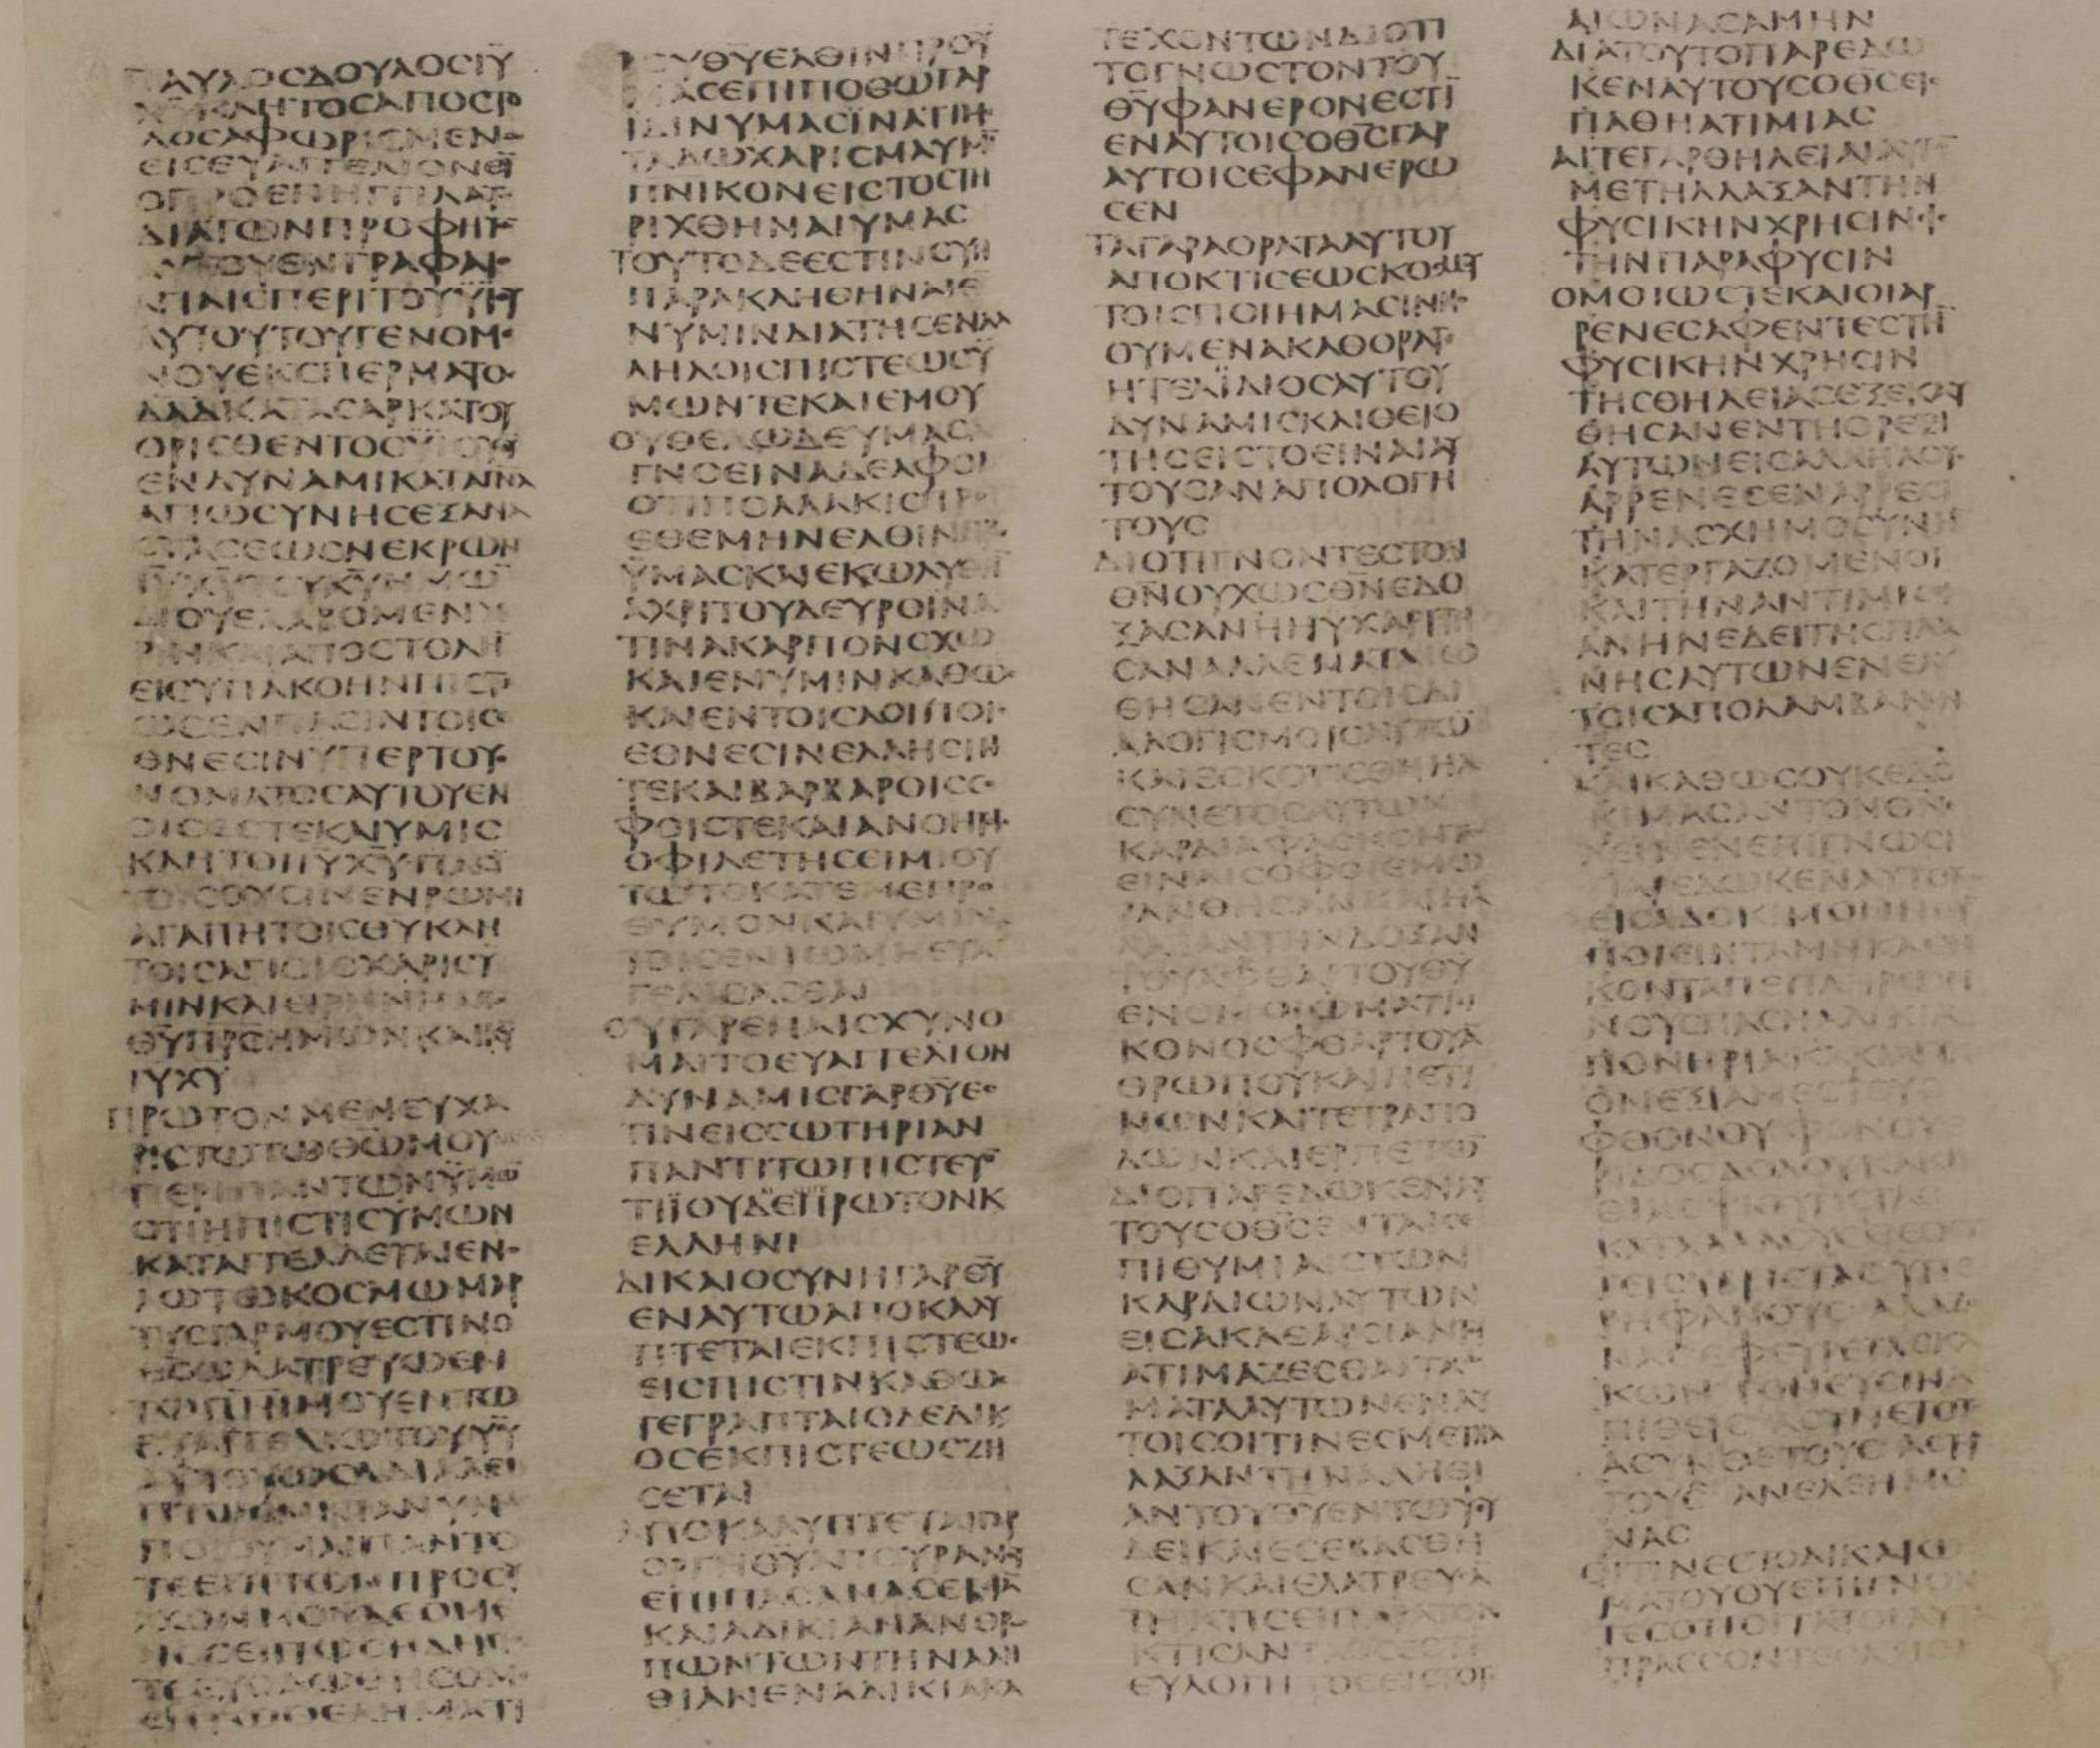 ΠΑΥΛΟΣ ΔΟΥΛΟΣ ΙΥ
ΧΥ ΚΛΗΤΟΣ ΑΠΟΣΤΟ
ΛΟΣ ΑΦΩΡΙΣΜΕΝΟΣ
ΕΙΣ ΕΥΑΓΓΕΛΙΟΝ ΘΥ
Ο ΠΡΟΕΠΗΓΓΙΛΑΤΟ
ΔΙΑ ΤΩΝ ΠΡΟΦΗΤΩ
ΑΥΤΟΥ ΕΝ ΓΡΑΦΑΙΣ
ΑΓΙΑΙΣ ΠΕΡΙ ΤΟΥ ΥΙΟΥ
ΑΥΤΟΥ ΤΟΥ ΓΕΝΟΜΕ
ΝΟΥ ΕΚ ΣΠΕΡΜΑΤΟΣ
ΔΑΔ ΚΑΤΑ ΣΑΡΚΑ ΤΟΥ
ΟΡΙΣΘΕΝΤΟΣ ΥΙΟΥ ΘΥ
ΕΝ ΔΥΝΑΜΙ ΚΑΤΑ ΠΝΑ
ΑΓΙΩΣΥΝΗΣ ΕΞ ΑΝΑ
ΣΤΑΣΕΩΣ ΝΕΚΡΩΝ
ΙΥ ΧΥ ΤΟΥ ΚΥ ΗΜΩΝ
ΔΙ ΟΥ ΕΛΑΒΟΜΕΝ ΧΑ
ΡΙΝ ΚΑΙ ΑΠΟΣΤΟΛΗ
ΕΙΣ ΥΠΑΚΟΗΝ ΠΙΣΤΕ
ΩΣ ΕΝ ΠΑΣΙΝ ΤΟΙΣ Ε
ΘΝΕΣΙΝ ΥΠΕΡ ΤΟΥ Ο
ΝΟΜΑΤΟΣ ΑΥΤΟΥ ΕΝ
ΟΙΣ ΕΣΤΕ ΚΑΙ ΥΜΙΣ
ΚΛΗΤΟΙ ΙΥ ΧΥ ΠΑΣΙ
ΤΟΙΣ ΟΥΣΙΝ ΕΝ ΡΩΜΗ
ΑΓΑΠΗΤΟΙΣ ΘΥ ΚΛΗ
ΤΟΙΣ ΑΓΙΟΙΣ ΧΑΡΙΣ Υ
ΜΙΝ ΚΑΙ ΕΙΡΗΝΗ ΑΠΟ
ΘΥ ΠΡΣ ΗΜΩΝ ΚΑΙ ΚΥ
ΙΥ ΧΥ
ΠΡΩΤΟΝ ΜΕΝ ΕΥΧΑ
ΡΙΣΤΩ ΤΩ ΘΩ ΜΟΥ
ΠΕΡΙ ΠΑΝΤΩΝ ΥΜΩ
ΟΤΙ Η ΠΙΣΤΙΣ ΥΜΩΝ
ΚΑΤΑΓΓΕΛΛΕΤΑΙ ΕΝ Ο
ΛΩ ΤΩ ΚΟΣΜΩ ΜΑΡ
ΤΥΣ ΓΑΡ ΜΟΥ ΕΣΤΙΝ Ο
ΘΣ Ω ΛΑΤΡΕΥΩ ΕΝ
ΤΩ ΠΝΙ ΜΟΥ ΕΝ ΤΩ
ΕΥΑΓΓΕΛΙΩ ΤΟΥ ΥΥ
ΑΥΤΟΥ ΩΣ ΑΔΙΑΛΕΙ
ΠΟΙΟΥΜΑΙ ΠΑΝΤΟ
ΤΕ ΕΠΙ ΤΩΝ ΠΡΟΣΕΥ
ΧΩΝ ΜΟΥ ΔΕΟΜΕ
ΝΟΣ ΕΙ ΠΩΣ ΗΔΗ ΠΟ
ΤΕ ΕΥΟΔΩΘΗΣΟΜΑΙ
ΕΝ ΤΩ ΘΕΛΗΜΑΤΙ
ΤΟΥ ΘΥ ΕΛΘΙΝ ΠΡΟΣ Υ
ΜΑΣ ΕΠΙΠΟΘΩ ΓΑΡ
ΙΔΙΝ ΥΜΑΣ ΙΝΑ ΤΙ ΜΕ
ΤΑΔΩ ΧΑΡΙΣΜΑ ΥΜΙ
ΠΝΙΚΟΝ ΕΙΣ ΤΟ ΣΤΗ
ΡΙΧΘΗΝΑΙ ΥΜΑΣ
ΤΟΥΤΟ ΔΕ ΕΣΤΙΝ ΣΥΝ
ΠΑΡΑΚΛΗΘΗΝΑΙ Ε
Ν ΥΜΙΝ ΔΙΑ ΤΗΣ ΕΝ ΑΛ
ΛΗΛΟΙΣ ΠΙΣΤΕΩΣ Υ
ΜΩΝ ΤΕ ΚΑΙ ΕΜΟΥ
ΟΥ ΘΕΛΩ ΔΕ ΥΜΑΣ Α
ΓΝΟΕΙΝ ΑΔΕΛΦΟΙ
ΟΤΙ ΠΟΛΛΑΚΙΣ ΠΡΟ
ΕΘΕΜΗΝ ΕΛΘΙΝ ΠΡΟΣ
ΥΜΑΣ ΚΑΙ ΕΚΩΛΥΘΗ
ΑΧΡΙ ΤΟΥ ΔΕΥΡΟ ΙΝΑ
ΤΙΝΑ ΚΑΡΠΟΝ ΣΧΩ
ΚΑΙ ΕΝ ΥΜΙΝ ΚΑΘΩΣ
ΚΑΙ ΕΝ ΤΟΙΣ ΛΟΙΠΟΙΣ
ΕΘΝΕΣΙΝ ΕΛΛΗΣΙΝ
ΤΕ ΚΑΙ ΒΑΡΒΑΡΟΙΣ ΣΟ
ΦΟΙΣ ΤΕ ΚΑΙ ΑΝΟΗΤΟΙΣ
ΟΦΙΛΕΤΗΣ ΕΙΜΙ ΟΥ
ΤΩ ΤΟ ΚΑΤ ΕΜΕ ΠΡΟ
ΘΥΜΟΝ ΚΑΙ ΥΜΙΝ
ΤΟΙΣ ΕΝ ΡΩΜΗ ΕΥΑΓ
ΓΕΛΙΣΑΣΘΑΙ
ΟΥ ΓΑΡ ΕΠΑΙΣΧΥΝΟ
ΜΑΙ ΤΟ ΕΥΑΓΓΕΛΙΟΝ
ΔΥΝΑΜΙΣ ΓΑΡ ΘΥ Ε
ΤΙΝ ΕΙΣ ΣΩΤΗΡΙΑΝ
ΠΑΝΤΙ ΤΩ ΠΙΣΤΕΥΟ
ΤΙ ΙΟΥΔΕ ΠΡΩΤΟΝ Κ
ΕΛΛΗΝΙ
ΔΙΚΑΙΟΣΥΝΗ ΓΑΡ ΘΥ
ΕΝ ΑΥΤΩ ΑΠΟΚΑΛΥ
ΠΤΕΤΑΙ ΕΚ ΠΙΣΤΕΩΣ
ΕΙΣ ΠΙΣΤΙΝ ΚΑΘΩΣ
ΓΕΓΡΑΠΤΑΙ Ο ΔΕ ΔΙΚ
ΟΣ ΕΚ ΠΙΣΤΕΩΣ ΖΗ
ΣΕΤΑΙ
ΑΠΟΚΑΛΥΠΤΕΤΑΙ ΓΑΡ
ΟΡΓΗ ΘΥ ΑΠ ΟΥΡΑΝΟΥ
ΕΠΙ ΠΑΣΑΝ ΑΣΕΒΙΑ
ΚΑΙ ΑΔΙΚΙΑΝ ΑΝΘΡΩ
ΠΩΝ ΤΩΝ ΤΗΝ ΑΛΗ
ΘΙΑΝ ΕΝ ΑΔΙΚΙΑ ΚΑ
ΤΕΧΟΝΤΩΝ ΔΙΟΤΙ
ΤΟ ΓΝΩΣΤΟΝ ΤΟΥ
ΘΥ ΦΑΝΕΡΟΝ ΕΣΤΙ
ΕΝ ΑΥΤΟΙΣ Ο ΘΣ ΓΑΡ
ΑΥΤΟΙΣ ΕΦΑΝΕΡΩ
ΣΕΝ
ΤΑ ΓΑΡ ΑΟΡΑΤΑ ΑΥΤΟΥ
ΑΠΟ ΚΤΙΣΕΩΣ ΚΟΣΜΟΥ
ΤΟΙΣ ΠΟΙΗΜΑΣΙΝ ΝΟ
ΟΥΜΕΝΑ ΚΑΘΟΡΑΤΑΙ
Η ΤΕ ΑΙΔΙΟΣ ΑΥΤΟΥ
ΔΥΝΑΜΙΣ ΚΑΙ ΘΕΙΟ
ΤΗΣ ΕΙΣ ΤΟ ΕΙΝΑΙ ΑΥ
ΤΟΥΣ ΑΝΑΠΟΛΟΓΗ
ΤΟΥΣ
ΔΙΟΤΙ ΓΝΟΝΤΕΣ ΤΟΝ
ΘΝ ΟΥΧ ΩΣ ΘΝ ΕΔΟ
ΞΑΣΑΝ Η ΗΥΧΑΡΙΣΤΗ
ΣΑΝ ΑΛΛ ΕΜΑΤΑΙΩ
ΘΗΣΑΝ ΕΝ ΤΟΙΣ ΔΙ
ΑΛΟΓΙΣΜΟΙΣ ΑΥΤΩ
ΚΑΙ ΕΣΚΟΤΙΣΘΗ Η Α
ΣΥΝΕΤΟΣ ΑΥΤΩΝ
ΚΑΡΔΙΑ ΦΑΣΚΟΝΤΕΣ
ΕΙΝΑΙ ΣΟΦΟΙ ΕΜΩ
ΡΑΝΘΗΣΑΝ ΚΑΙ ΗΛ
ΛΑΞΑΝ ΤΗΝ ΔΟΞΑΝ
ΤΟΥ ΑΦΘΑΡΤΟΥ ΘΥ
ΕΝ ΟΜΟΙΩΜΑΤΙ ΕΙ
ΚΟΝΟΣ ΦΘΑΡΤΟΥ Α
ΘΡΩΠΟΥ ΚΑΙ ΠΕΤΙ
ΝΩΝ ΚΑΙ ΤΕΤΡΑΠΟ
ΔΩΝ ΚΑΙ ΕΡΠΕΤΩ
ΔΙΟ ΠΑΡΕΔΩΚΕΝ ΑΥ
ΤΟΥΣ Ο ΘΣ ΕΝ ΤΑΙΣ Ε
ΠΙΘΥΜΙΑΙΣ ΤΩΝ
ΚΑΡΔΙΩΝ ΑΥΤΩΝ
ΕΙΣ ΑΚΑΘΑΡΣΙΑΝ
ΑΤΙΜΑΖΕΣΘΑΙ ΤΑ ΣΩ
ΜΑΤΑ ΑΥΤΩΝ ΕΝ ΑΥ
ΤΟΙΣ ΟΙΤΙΝΕΣ ΜΕΤΗΛ
ΛΑΞΑΝ ΤΗΝ ΑΛΗΘΙ
ΑΝ ΤΟΥ ΘΥ ΕΝ ΤΩ ΨΕΥ
ΔΕΙ ΚΑΙ ΕΣΕΒΑΣΘΗ
ΣΑΝ ΚΑΙ ΕΛΑΤΡΕΥΣΑ
ΤΗ ΚΤΙΣΕΙ ΠΑΡΑ ΤΟΝ
ΚΤΙΣΑΝΤΑ ΟΣ ΕΣΤΙ
ΕΥΛΟΓΗΤΟΣ ΕΙΣ ΤΟΥΣ
ΑΙΩΝΑΣ ΑΜΗΝ
ΔΙΑ ΤΟΥΤΟ ΠΑΡΕΔΩ
ΚΕΝ ΑΥΤΟΥΣ Ο ΘΣ ΕΙΣ
ΠΑΘΗ ΑΤΙΜΙΑΣ
ΑΙ ΤΕ ΓΑΡ ΘΗΛΕΙΑΙ ΑΥΤΩ
ΜΕΤΗΛΛΑΞΑΝ ΤΗΝ
ΦΥΣΙΚΗΝ ΧΡΗΣΙΝ
ΤΗΝ ΠΑΡΑ ΦΥΣΙΝ
ΟΜΟΙΩΣ ΤΕ ΚΑΙ ΟΙ ΑΡ
ΡΕΝΕΣ ΑΦΕΝΤΕΣ ΤΗ
ΦΥΣΙΚΗΝ ΧΡΗΣΙΝ
ΤΗΣ ΘΗΛΕΙΑΣ ΕΞΕΚΑΥ
ΘΗΣΑΝ ΕΝ ΤΗ ΟΡΕΞΙ
ΑΥΤΩΝ ΕΙΣ ΑΛΛΗΛΟΥΣ
ΑΡΡΕΝΕΣ ΕΝ ΑΡΡΕΣΙ
ΤΗΝ ΑΣΧΗΜΟΣΥΝΗ
ΚΑΤΕΡΓΑΖΟΜΕΝΟΙ
ΚΑΙ ΤΗΝ ΑΝΤΙΜΙΣΘΙ
ΑΝ ΗΝ ΕΔΕΙ ΤΗΣ ΠΛΑ
ΝΗΣ ΑΥΤΩΝ ΕΝ ΕΑΥ
ΤΟΙΣ ΑΠΟΛΑΜΒΑΝΟΝ
ΤΕΣ
ΚΑΙ ΚΑΘΩΣ ΟΥΚ ΕΔΟ
ΚΙΜΑΣΑΝ ΤΟΝ ΘΝ
ΧΕΙΝ ΕΝ ΕΠΙΓΝΩΣΙ
ΠΑΡΕΔΩΚΕΝ ΑΥΤΟΥΣ
ΕΙΣ ΑΔΟΚΙΜΟΝ ΝΟΥ
ΠΟΙΕΙΝ ΤΑ ΜΗ ΚΑΘΗ
ΚΟΝΤΑ ΠΕΠΛΗΡΩΜ
ΝΟΥΣ ΠΑΣΗ ΑΔΙΚΙΑ
ΠΟΝΗΡΙΑ ΚΑΚΙΑ
ΠΛΕΟΝΕΞΙΑ ΜΕΣΤΟΥΣ
ΦΘΟΝΟΥ ΦΟΝΟΥ Ε
ΡΙΔΟΣ ΔΟΛΟΥ ΚΑΚΟΗ
ΘΙΑΣ ΨΙΘΥΡΙΣΤΑΣ
ΚΑΤΑΛΑΛΟΥΣ ΘΕΟΣ
ΓΕΙΣ ΥΒΡΙΣΤΑΣ ΥΠΕ
ΡΗΦΑΝΟΥΣ ΑΛΑΖΟ
ΝΑΣ ΕΦΕΥΡΕΤΑΣ ΚΑ
ΚΩΝ ΓΟΝΕΥΣΙΝ Α
ΠΙΘΕΙΣ ΑΣΥΝΕΤΟΥΣ
ΑΣΥΝΘΕΤΟΥΣ ΑΣΤΟΡ
ΓΟΥΣ ΑΝΕΛΕΗΜΟ
ΝΑΣ
ΟΙΤΙΝΕΣ ΤΟ ΔΙΚΑΙΩ
ΜΑ ΤΟΥ ΘΥ ΕΠΙΓΝΟΝ
ΤΕΣ ΟΤΙ ΟΙ ΤΑ ΤΟΙΑΥΤΑ
ΠΡΑΣΣΟΝΤΕΣ ΑΞΙΟΙ